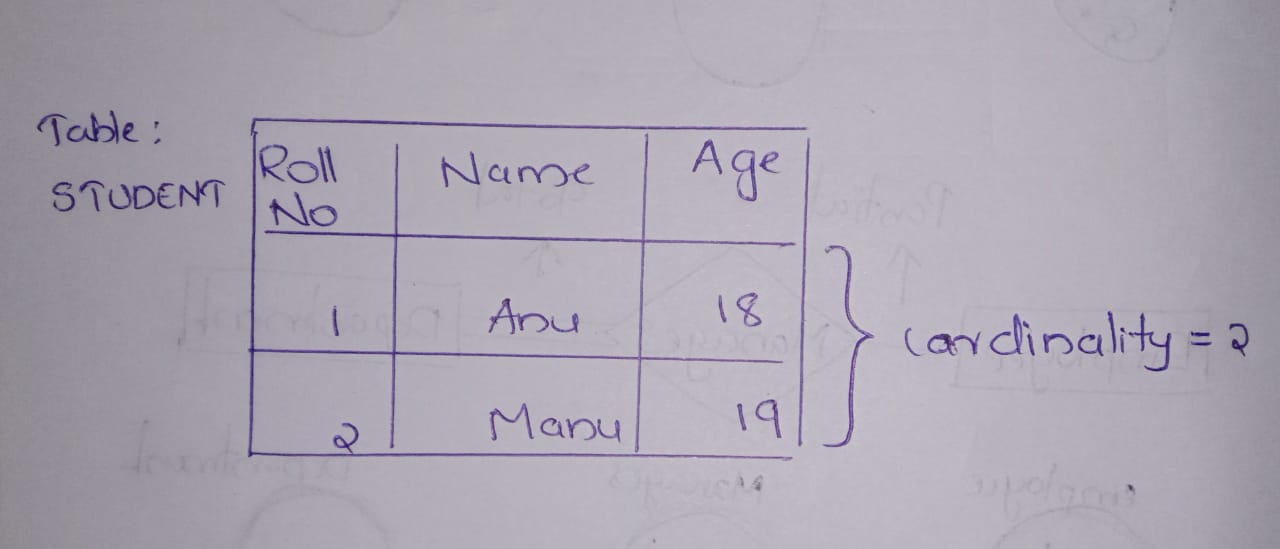 Table:
STUDENT
Roll No Name Age
1 Anu 18
2 Manu 19
cardinality = 2